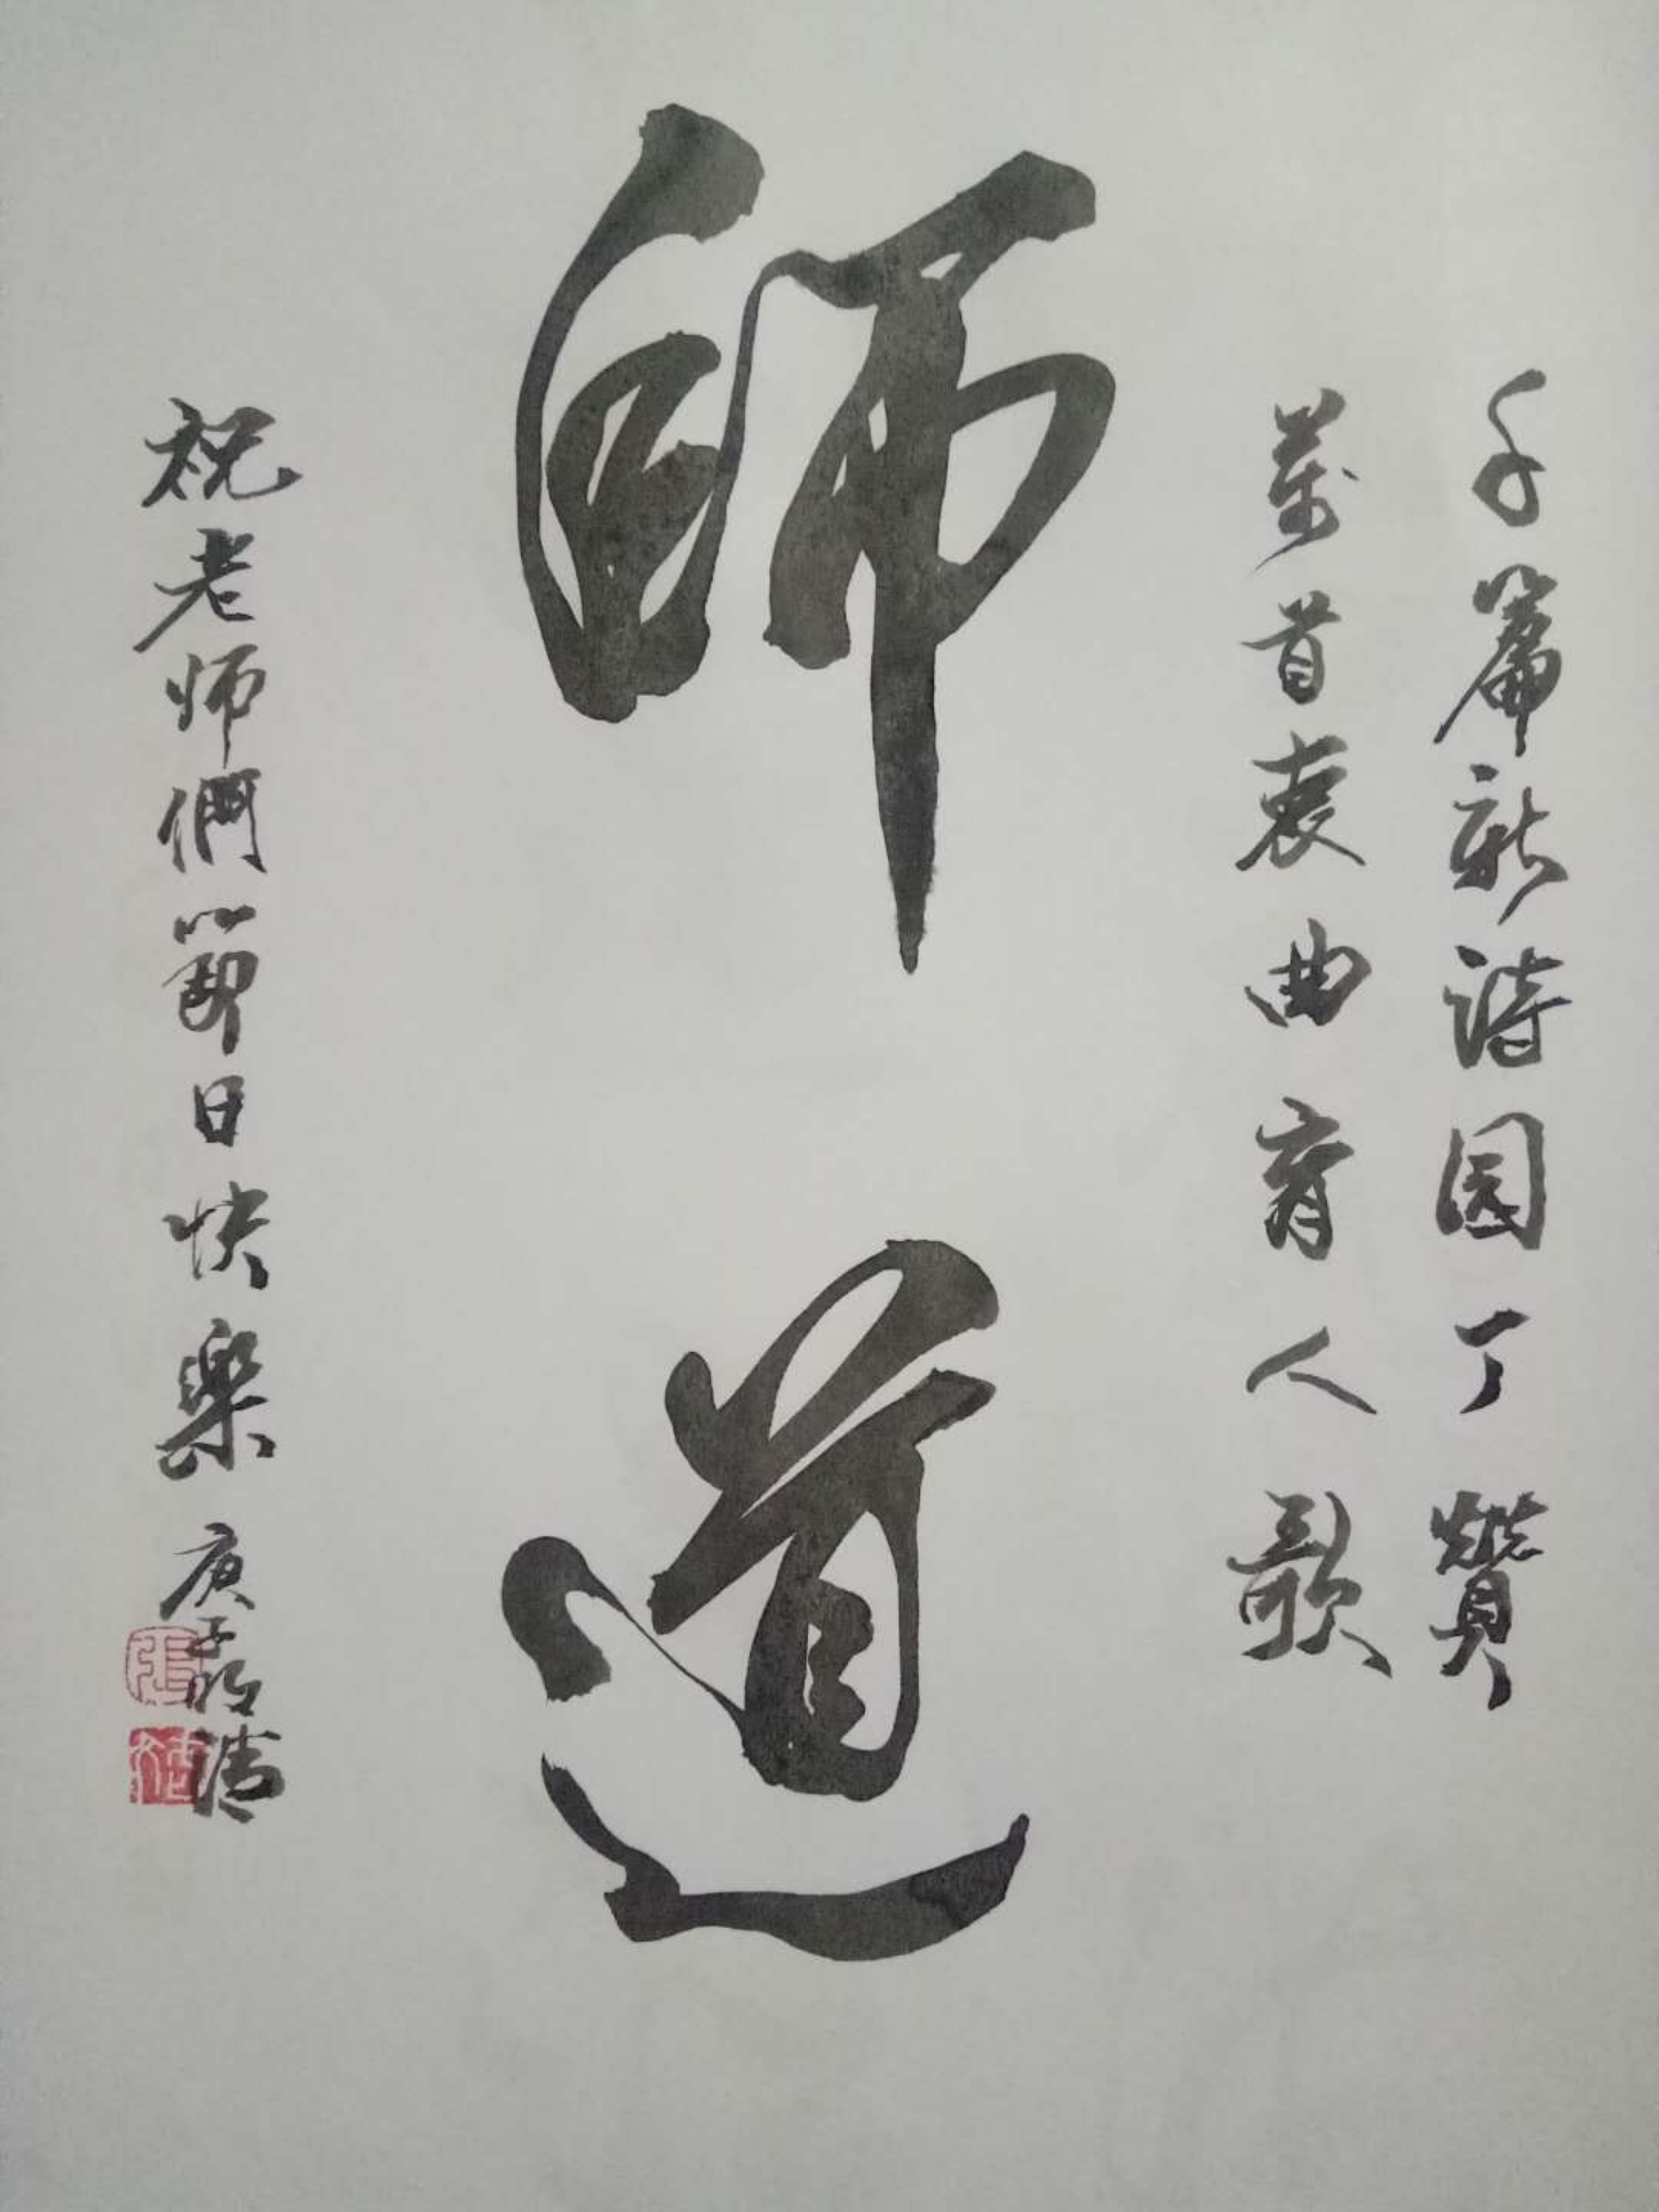 千篇新詩园丁贊
萬首衷曲育人歌
師道
祝老师們節日快樂 庚子